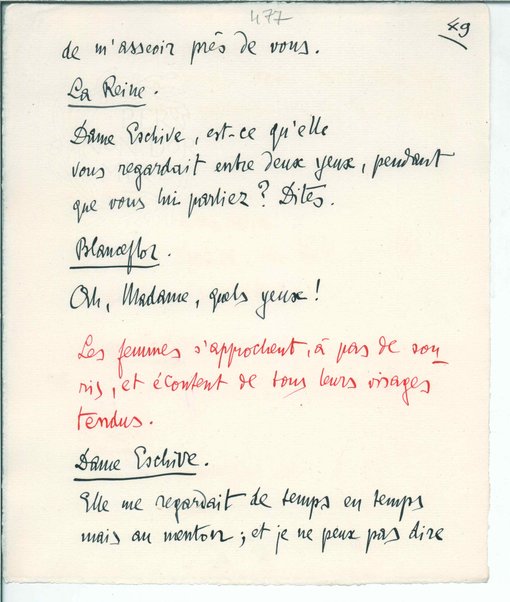 477
49
de m'asseoir près de vous.
La Reine.
Dame Eschive, est-ce qu'elle
vous regardait entre deux yeux, pendant
que vous lui parliez ? Dites.
Blanceflor.
Oh, Madame, quels yeux !
Les femmes s'approchent, à pas de sou-
ris, et écoutent de tous leurs visages
tendus.
Dame Eschive.
Elle me regardait de temps en temps
mais au menton ; et je ne peux pas dire